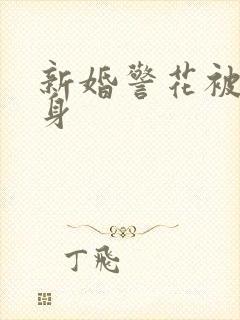 新婚警花被
身
丁飛